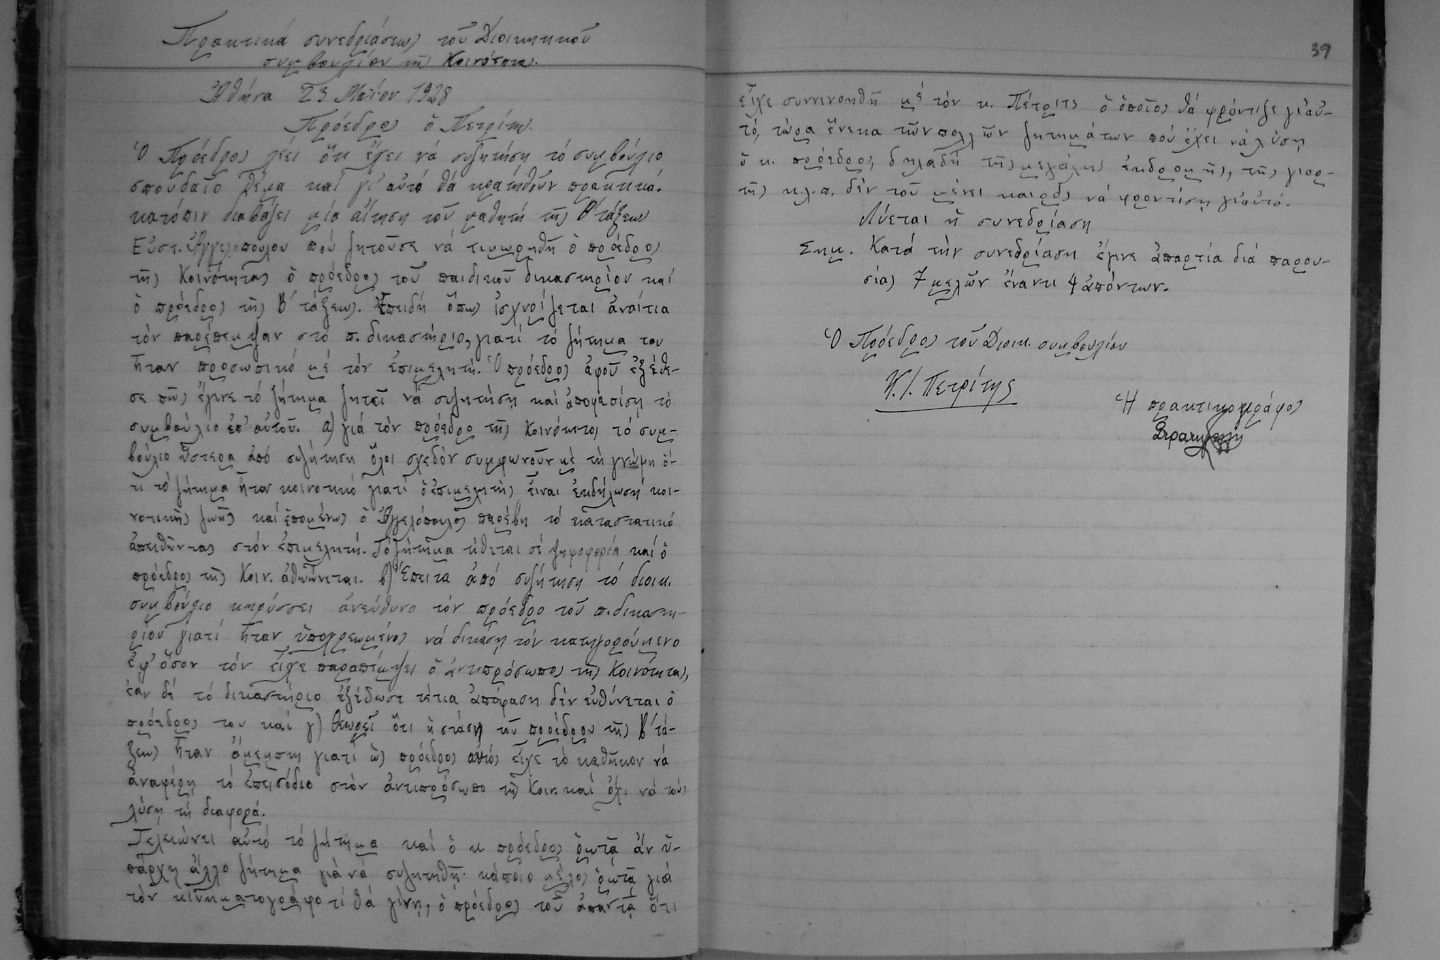 Πρακτικά συνεδριάσεως τοῦ Διοικητικοῦ
συμβουλίου τῆς Κοινότητας.
Ἀθήνα 23 Μαΐου 1928
Πρόεδρος ὁ Πετρίτης.
Ὁ Πρόεδρος λέει ὅτι ἔχει νά συζητήση τό συμβούλιο
σπουδαῖο θέμα καί γι' αὐτό θά κρατηθοῦν πρακτικά.
κατόπιν διαβάζει μία αἴτηση τοῦ μαθητῆ τῆς Β΄ τάξεως
Εὐστ. Ἀγγελόπουλου πού ζητοῦσε νά τιμωρηθῆ ὁ πρόεδρος
τῆς Κοινότητας ὁ πρόεδρος τοῦ παιδικοῦ δικαστηρίου καί
ὁ πρόεδρος τῆς Β΄ τάξεως. Ἐπειδή ὅπως ἰσχυρίζεται ἀναίτια
τόν παρέπεμψαν στό π. δικαστήριο, γιατί τό ζήτημα του
ἦταν προσωπικό μέ τόν ἐπιμελητή. Ὁ πρόεδρος ἀφοῦ ἐξέθε-
σε πῶς ἔγινε τό ζήτημα ζητεῖ νά συζητήση καί ἀποφασίση τό
συμβούλιο ἐπ' αὐτοῦ. α) γιά τόν πρόεδρο τῆς Κοινότητος τό συμ-
βούλιο ὕστερα ἀπό συζήτηση ὅλοι σχεδόν συμφωνοῦν μέ τή γνώμη ὅ-
τι τό ζήτημα ἦταν κοινοτικό γιατί ὁ ἐπιμελητής εἶναι ἐκδήλωση κοι-
νοτικῆς ζωῆς καί ἑπομένως ὁ Ἀγγελόπουλος παρέβη τό καταστατικό
ἀπειθῶντας στόν ἐπιμελητή. Τό ζήτημα τίθεται σέ ψηφοφορία καί ὁ
πρόεδρος τῆς Κοιν. ἀθωώνεται. β) Ἔπειτα ἀπό συζήτηση τό διοικ.
συμβούλιο κηρύσσει ἀνεύθυνο τόν πρόεδρο τοῦ π. δικαστη-
ρίου γιατί ἦταν ὑποχρεωμένος νά δικάση τόν κατηγορούμενο
ἐφ' ὅσον τόν εἶχε παραπέμψει ὁ ἀντιπρόσωπος τῆς Κοινότητας,
ἐάν δέ τό δικαστήριο ἐξέδωσε τέτια ἀπόφαση δέν εὐθύνεται ὁ
πρόεδρος του καί γ) θεωρεῖ ὅτι ἡ στάση τοῦ προέδρου τῆς Β΄ τά-
ξεως ἦταν ἄμεμπτη γιατί ὡς πρόεδρος αὐτός εἶχε τό καθῆκον νά
ἀναφέρη τό ἐπεισόδιο στόν ἀντιπρόσωπο τῆς Κοιν. καί ὄχι νά τούς
λύση τή διαφορά.
Τελειώνει αὐτό τό ζήτημα καί ὁ κ πρόεδρος ρωτᾶ ἄν ὑ-
πάρχη ἄλλο ζήτημα γιά νά συζητηθῆ. κάποιο μέλος ρωτᾶ γιά
τόν κινηματογράφο τί θά γίνη, ὁ πρόεδρος τοῦ ἀπαντᾶ ὅτι
39
εἶχε συνεννοηθῆ μέ τόν κ. Πετρίτη ὁ ὁποῖος θά φρόντιζε γι' αὐ-
τό, τώρα ἕνεκα τῶν πολλῶν ζητημάτων πού ἔχει νά λύση
ὁ κ. πρόεδρος, δηλαδή τῆς μεγάλης ἐκδρομῆς, τῆς γιορ-
τῆς κ.λ.π. δέν τοῦ μένει καιρός νά φροντίση γι' αὐτό.
Λύεται ἡ συνεδρίαση
Σημ. Κατά τήν συνεδρίαση ἔγινε ἀπαρτία διά παρου-
σίας 7 μελῶν ἔναντι 4 ἀπόντων.
Ὁ Πρόεδρος τοῦ Διοικ. συμβουλίου
Κ. Ι. Πετρίτης
Ἡ πρακτικογράφος